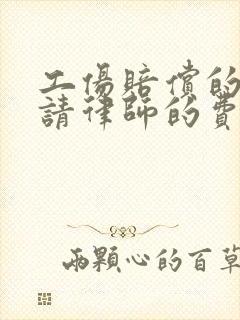 工傷賠償的
請律師的費
兩顆心的百草